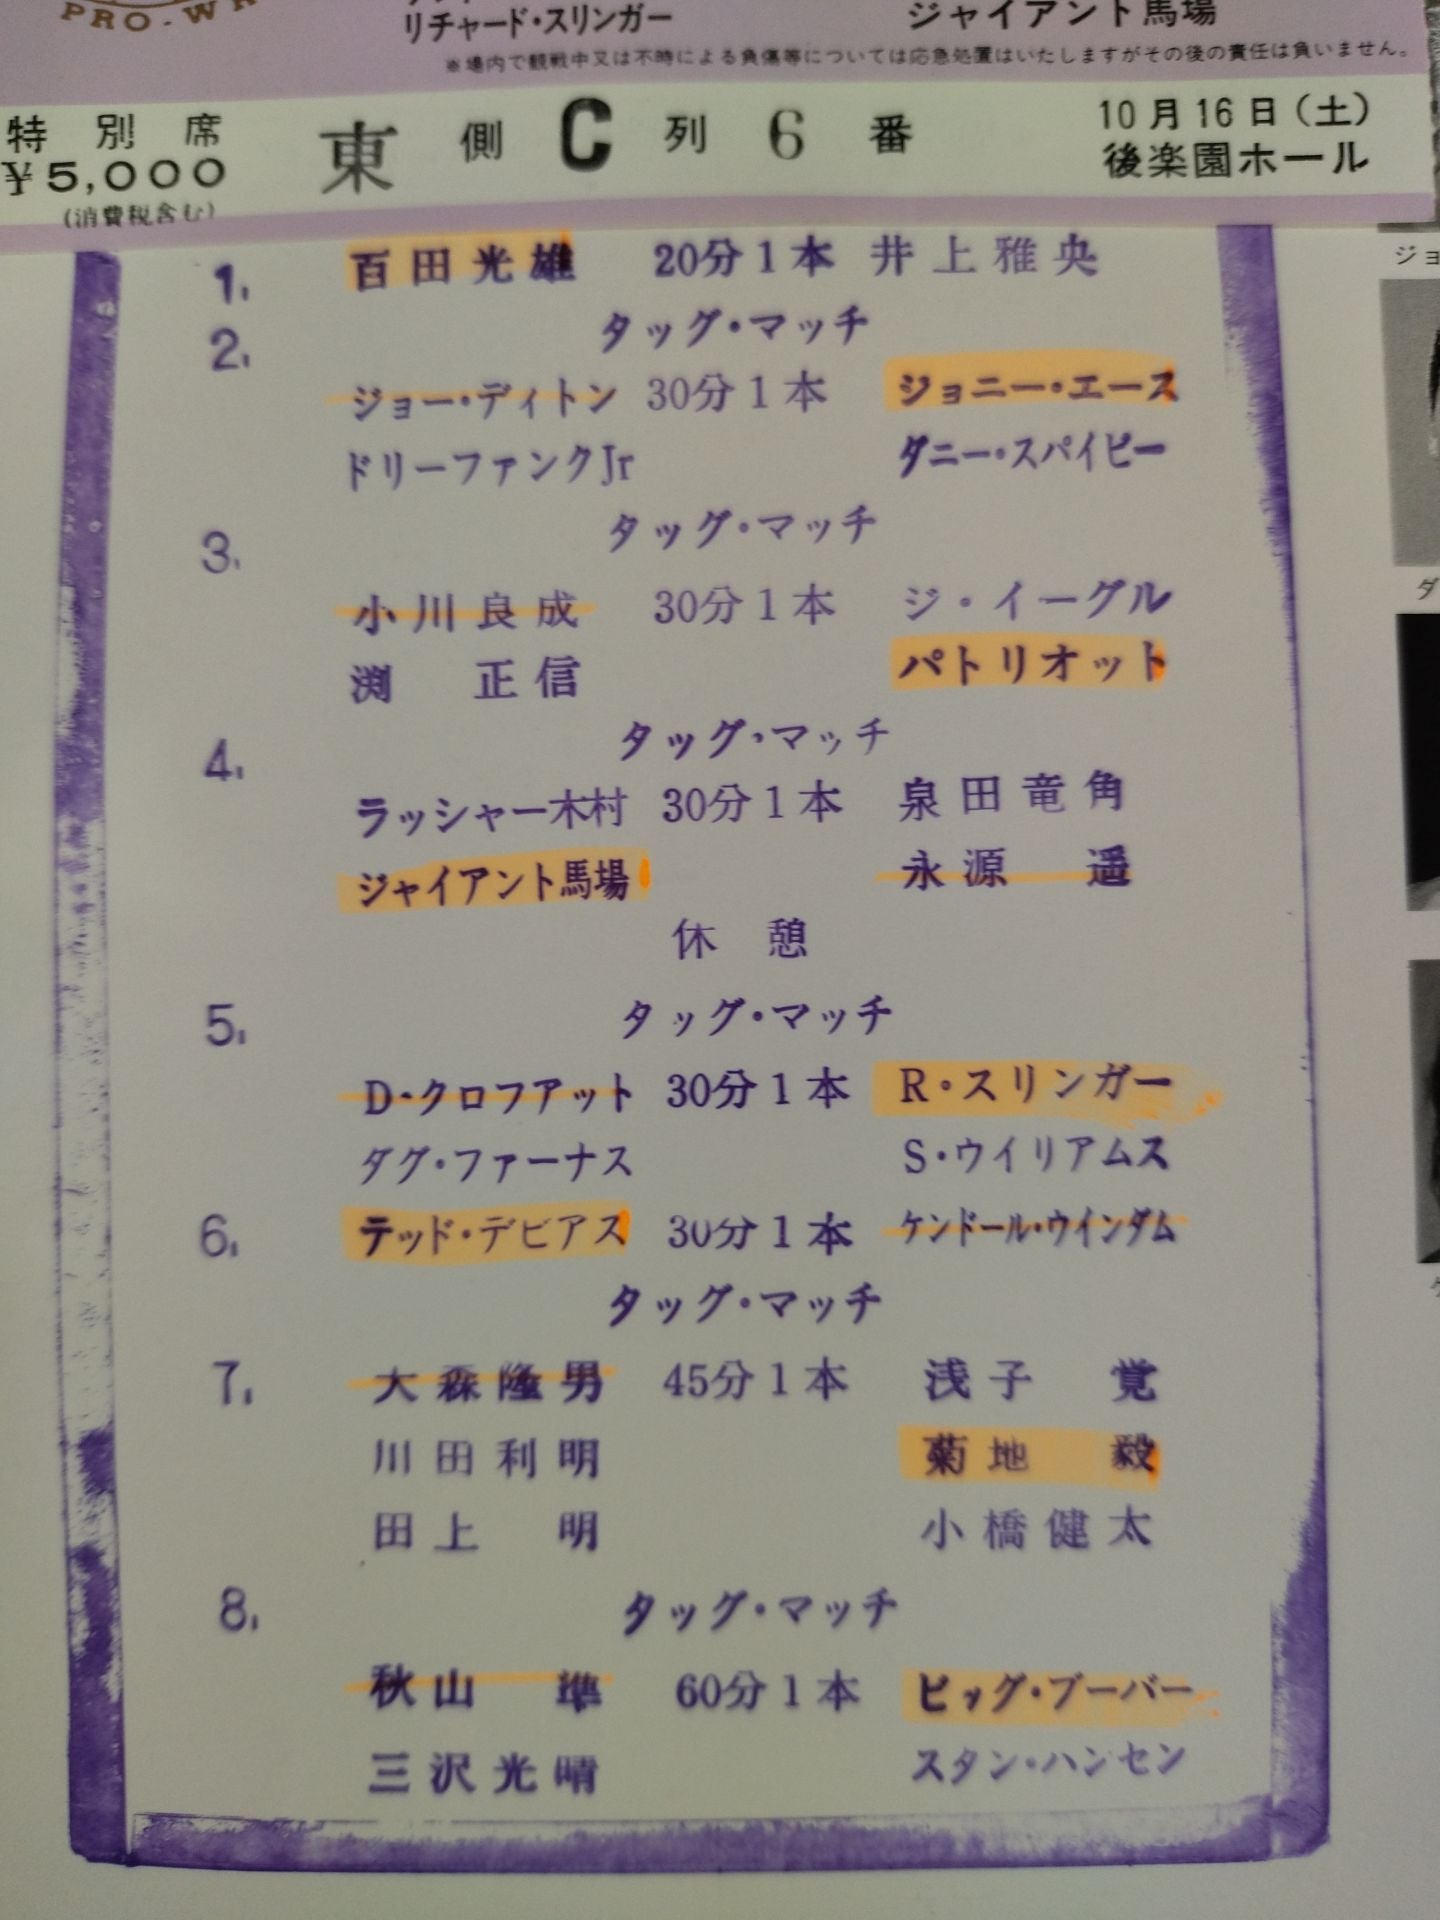 PRO-WR
リチャード・スリンガー ジャイアント馬場
※場内で観戦中又は不時による負傷等については応急処置はいたしますがその後の責任は負いません。
特別席 東側C列6番 10月16日(土)
¥5,000 後楽園ホール
(消費税含む)
1. 百田光雄 20分1本 井上雅央
2. タッグ・マッチ
ジョー・ディトン 30分1本 ジョニー・エース
ドリーファンクJr ダニー・スパイビー
3. タッグ・マッチ
小川良成 30分1本 ジ・イーグル
渕 正信 パトリオット
4. タッグ・マッチ
ラッシャー木村 30分1本 泉田竜角
ジャイアント馬場 永源 遥
休憩
5. タッグ・マッチ
D・クロフアット 30分1本 R・スリンガー
ダグ・ファーナス S・ウイリアムス
6. テッド・デビアス 30分1本 ケンドール・ウインダム
タッグ・マッチ
7. 大森隆男 45分1本 浅子 覚
川田利明 菊地 毅
田上 明 小橋健太
8. タッグ・マッチ
秋山 準 60分1本 ビッグ・ブーバー
三沢光晴 スタン・ハンセン
ジョ
ダ